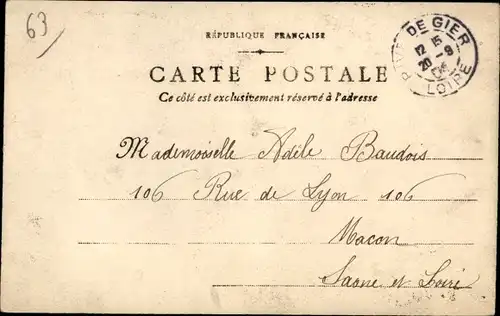 63
RÉPUBLIQUE FRANÇAISE
CARTE POSTALE
Ce côté est exclusivement réservé à l'adresse
RIVE DE GIER
12 15
20 -9
LOIRE
Mademoiselle Adèle Baudois
106 Rue de Lyon 106
Macon
Saone et Loire